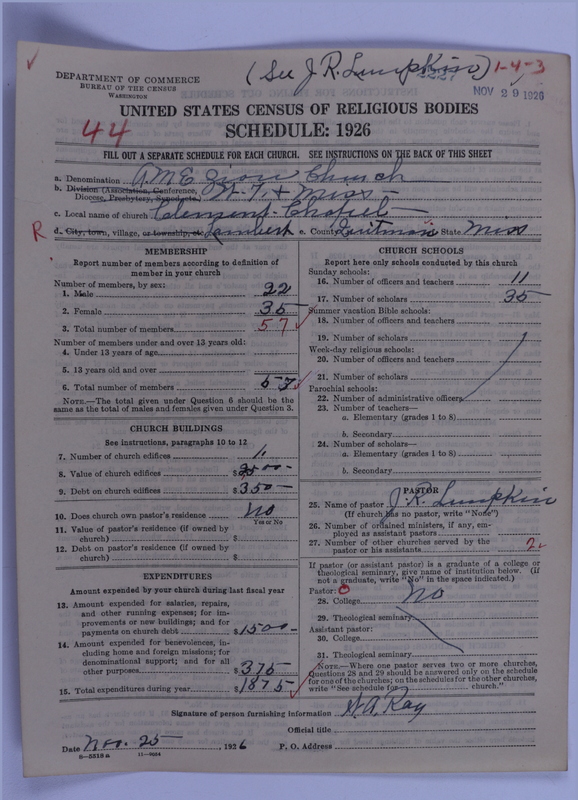 (See J. R. Lumpkin) 1-4-3
DEPARTMENT OF COMMERCE
BUREAU OF THE CENSUS
WASHINGTON
NOV 29 1926
UNITED STATES CENSUS OF RELIGIOUS BODIES
44
SCHEDULE: 1926
FILL OUT A SEPARATE SCHEDULE FOR EACH CHURCH. SEE INSTRUCTIONS ON THE BACK OF THIS SHEET
a. Denomination A.M.E Zion Church
b. Division (Association, Conference, Diocese, Presbytery, Synod, etc.) W. T. & Miss
c. Local name of church Clement Chapel
R d. City, town, village, or township, etc. Lambert e. County Quitman State Miss
MEMBERSHIP
Report number of members according to definition of
member in your church
Number of members, by sex:
1. Male 22
2. Female 35
3. Total number of members 57
Number of members under and over 13 years old:
4. Under 13 years of age
5. 13 years old and over
6. Total number of members 57
NOTE.—The total given under Question 6 should be the
same as the total of males and females given under Question 3.
CHURCH BUILDINGS
See instructions, paragraphs 10 to 12
7. Number of church edifices 1
8. Value of church edifices $2500-
9. Debt on church edifices $350-
10. Does church own pastor's residence No
Yes or No
11. Value of pastor's residence (if owned by
church) $
12. Debt on pastor's residence (if owned by
church) $
EXPENDITURES
Amount expended by your church during last fiscal year
13. Amount expended for salaries, repairs,
and other running expenses; for im-
provements or new buildings; and for
payments on church debt $1500-
14. Amount expended for benevolences, in-
cluding home and foreign missions; for
denominational support; and for all
other purposes $375
15. Total expenditures during year $1875
CHURCH SCHOOLS
Report here only schools conducted by this church
Sunday schools:
16. Number of officers and teachers 11
17. Number of scholars 35
Summer vacation Bible schools:
18. Number of officers and teachers
19. Number of scholars
Week-day religious schools:
20. Number of officers and teachers
21. Number of scholars
Parochial schools:
22. Number of administrative officers
23. Number of teachers—
a. Elementary (grades 1 to 8)
b. Secondary
24. Number of scholars—
a. Elementary (grades 1 to 8)
b. Secondary
PASTOR
25. Name of pastor J. R. Lumpkin
(If church has no pastor, write "None")
26. Number of ordained ministers, if any, em-
ployed as assistant pastors
27. Number of other churches served by the
pastor or his assistants 2
If pastor (or assistant pastor) is a graduate of a college or
theological seminary, give name of institution below. (If
not a graduate, write "No" in the space indicated.)
Pastor: 0
28. College No
29. Theological seminary
Assistant pastor:
30. College
31. Theological seminary
NOTE.—Where one pastor serves two or more churches,
Questions 28 and 29 should be answered only on the schedule
for one of the churches; on the schedules for the other churches,
write "See schedule for church."
Signature of person furnishing information H. A. Ray
Official title
Date Nov. 25, 1926 P. O. Address
8-5518 a 11-9024